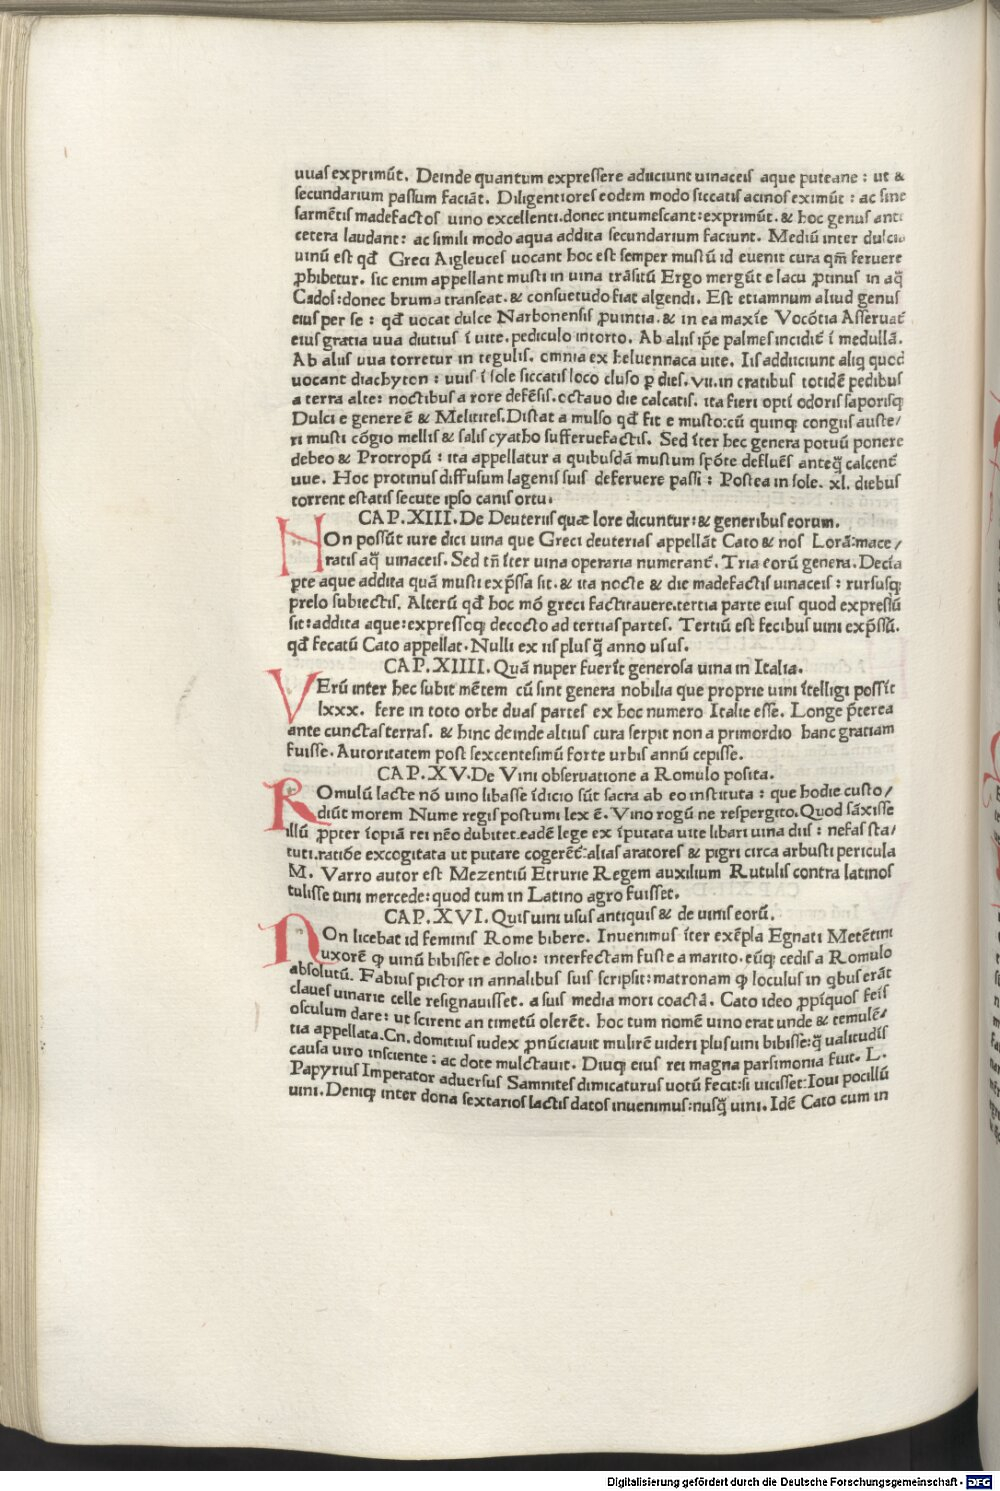 uuas exprimūt. Deinde quantum expressere adiiciunt uinaceis aque puteane : ut &
secundarium passum faciāt. Diligentiores eodem modo siccatis acinos eximūt : ac sine
sarmētis madefactos uino excellenti.donec intumescant:exprimūt. & hoc genus anti
cetera laudant: ac simili modo aqua addita secundarium faciunt. Mediū inter dulcia
uinū est qđ Greci Aigleuces uocant hoc est semper mustū id euenit cura qm̄ feruere
ꝓhibetur. sic enim appellant musti in uina trāsitū Ergo mergūt e lacu ꝓtinus in aq̄
Cados:donec bruma transeat. & consuetudo fiat algendi. Est etiamnum aliud genus
eius per se : qđ uocat dulce Narbonensis ꝓuintia. & in ea maxīe Vocōtia Asseruat̄
eius gratia uua diutius ī uite. pediculo intorto. Ab aliis ip̄e palmes incidit̄ ī medullā.
Ab aliis uua torretur in tegulis. omnia ex heluennaca uite. Iis adiiciunt aliq quod
uocant diachyton : uuis ī sole siccatis loco cluso ꝑ dies. vii. in cratibus totidē pedibus
a terra alte: noctibus a rore defēsis. octauo die calcatis. ita fieri optī odoris saporisqȝ
Dulci e genere ē & Melitites. Distat a mulso qđ fit e musto:cū quinqȝ congiis auste/
ri musti cōgio mellis & salis cyatho sufferuefactis. Sed īter hec genera potuū ponere
debeo & Protropū : ita appellatur a quibusdā mustum spōte defluēs anteq̄ calcent̄
uue. Hoc protinus diffusum lagenis suis deferuere passi : Postea in sole. xl. diebus
torrent estatis secute ipso canis ortu.
CAP.XIII. De Deuteriis quæ lore dicuntur:& generibus eorum.
HOn possūt iure dici uina que Greci deuterias appellāt Cato & nos Lorā:mace/
ratis aq̄ uinaceis. Sed tn̄ īter uina operaria numerant̄. Tria eorū genera. Decīa
pte aque addita quā musti exp̄ssa sit. & ita nocte & die madefactis uinaceis : rursusqȝ
prelo subiectis. Alterū qđ hoc mō greci factitauere.tertia parte eius quod expressū
sit:addita aque:expressoqȝ decocto ad tertias partes. Tertiū est fecibus uini exp̄ssū.
qđ fecatū Cato appellat. Nulli ex iis plus q̄ anno usus.
CAP.XIIII. Quā nuper fuerīt generosa uina in Italia.
VErū inter hec subit mētem cū sint genera nobilia que proprie uini ītelligi possīt
lxxx. fere in toto orbe duas partes ex hoc numero Italie esse. Longe p̄terea
ante cunctas terras. & hinc deinde altius cura serpit non a primordio hanc gratiam
fuisse. Autoritatem post sexcentesimū forte urbis annū cepisse.
CAP.XV.De Vini obseruatione a Romulo posita.
ROmulū lacte nō uino libasse īdicio sūt sacra ab eo instituta : que hodie custo/
diūt morem Nume regis postumi lex ē. Vino rogū ne respergito. Quod sāxisse
illū ꝓpter īopiā rei nēo dubitet.eadē lege ex īputata uite libari uina diis : nefas sta/
tuti.ratiōe excogitata ut putare cogerēt̄:alias aratores & pigri circa arbusti pericula
M. Varro autor est Mezentiū Etrurie Regem auxilium Rutulis contra latinos
tulisse uini mercede:quod tum in Latino agro fuisset.
CAP.XVI. Quis uini usus antiquis & de uinis eorū.
NOn licebat id feminis Rome bibere. Inuenimus īter exēpla Egnati Metētini
uxorē ꝙ uinū bibisset e dolio: interfectam fuste a marito. eūqȝ cedis a Romulo
absolutū. Fabius pictor in annalibus suis scripsit:matronam ꝙ loculus in qbus erāt
claues uinarie celle resignauisset. a suis media mori coactā. Cato ideo ꝓpīquos feīs
osculum dare: ut scirent an timetū olerēt. hoc tum nomē uino erat unde & temulē/
tia appellata. Cn. domitius iudex ꝓnūciauit mulirē uideri plus uini bibisse:q̄ ualitudīs
causa uiro insciente : ac dote mulctauit. Diuqȝ eius rei magna parsimonia fuit. L.
Papyrius Imperator aduersus Samnites dimicaturus uotū fecit:si uicisset:Ioui pocillū
uini. Deniqȝ inter dona sextarios lactis datos inuenimus:nusq̄ uini. Idē Cato cum in
Digitalisierung gefördert durch die Deutsche Forschungsgemeinschaft - DFG